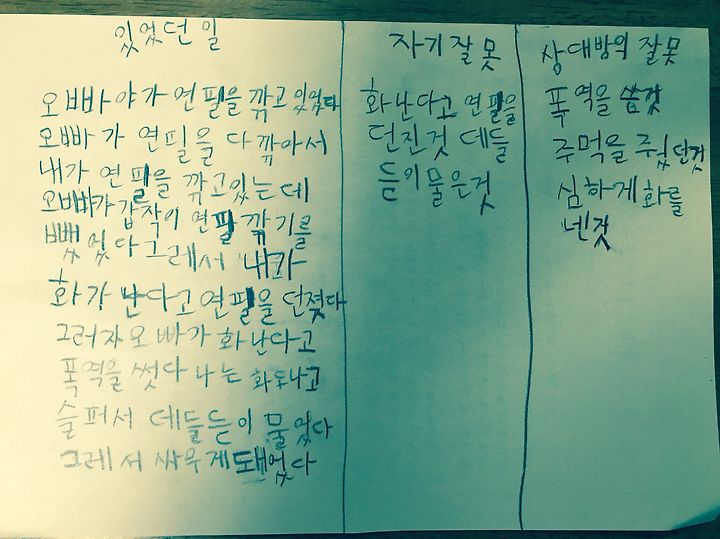 있었던 일
오빠야가 연필을 깎고있었다
오빠가 연필을 다 깎아서
내가 연필을 깎고있는데
오빠가갑작이 연필깎기를
뺐었다그레서 내가
화가 난다고연필을던졌다
그러자오빠가 화난다고
폭역을 썼다 나는 화도나고
슬퍼서 데들듣이 물었다
그레서 싸우게돼었다
자기잘못
화난다고 연필을
던진것 데들
듣이물은것
상대방의 잘못
폭역을 씀것
주먹을 쥤던것
심하게화를
넨것